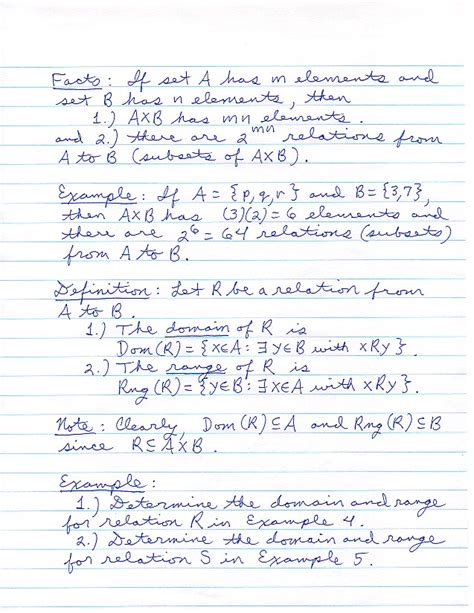 Facts : If set A has m elements and
set B has n elements, then
1.) A×B has mn elements.
and 2.) there are 2^mn relations from
A to B (subsets of A×B).
Example : If A = {p, q, r} and B = {3,7},
then A×B has (3)(2) = 6 elements and
there are 2^6 = 64 relations (subsets)
from A to B.
Definition : Let R be a relation from
A to B.
1.) The domain of R is
Dom(R) = {x∈A : ∃ y∈B with xRy}.
2.) The range of R is
Rng(R) = {y∈B : ∃ x∈A with xRy}.
Note : Clearly, Dom(R) ⊆ A and Rng(R) ⊆ B
since R ⊆ A×B.
Example :
1.) Determine the domain and range
for relation R in Example 4.
2.) Determine the domain and range
for relation S in Example 5.